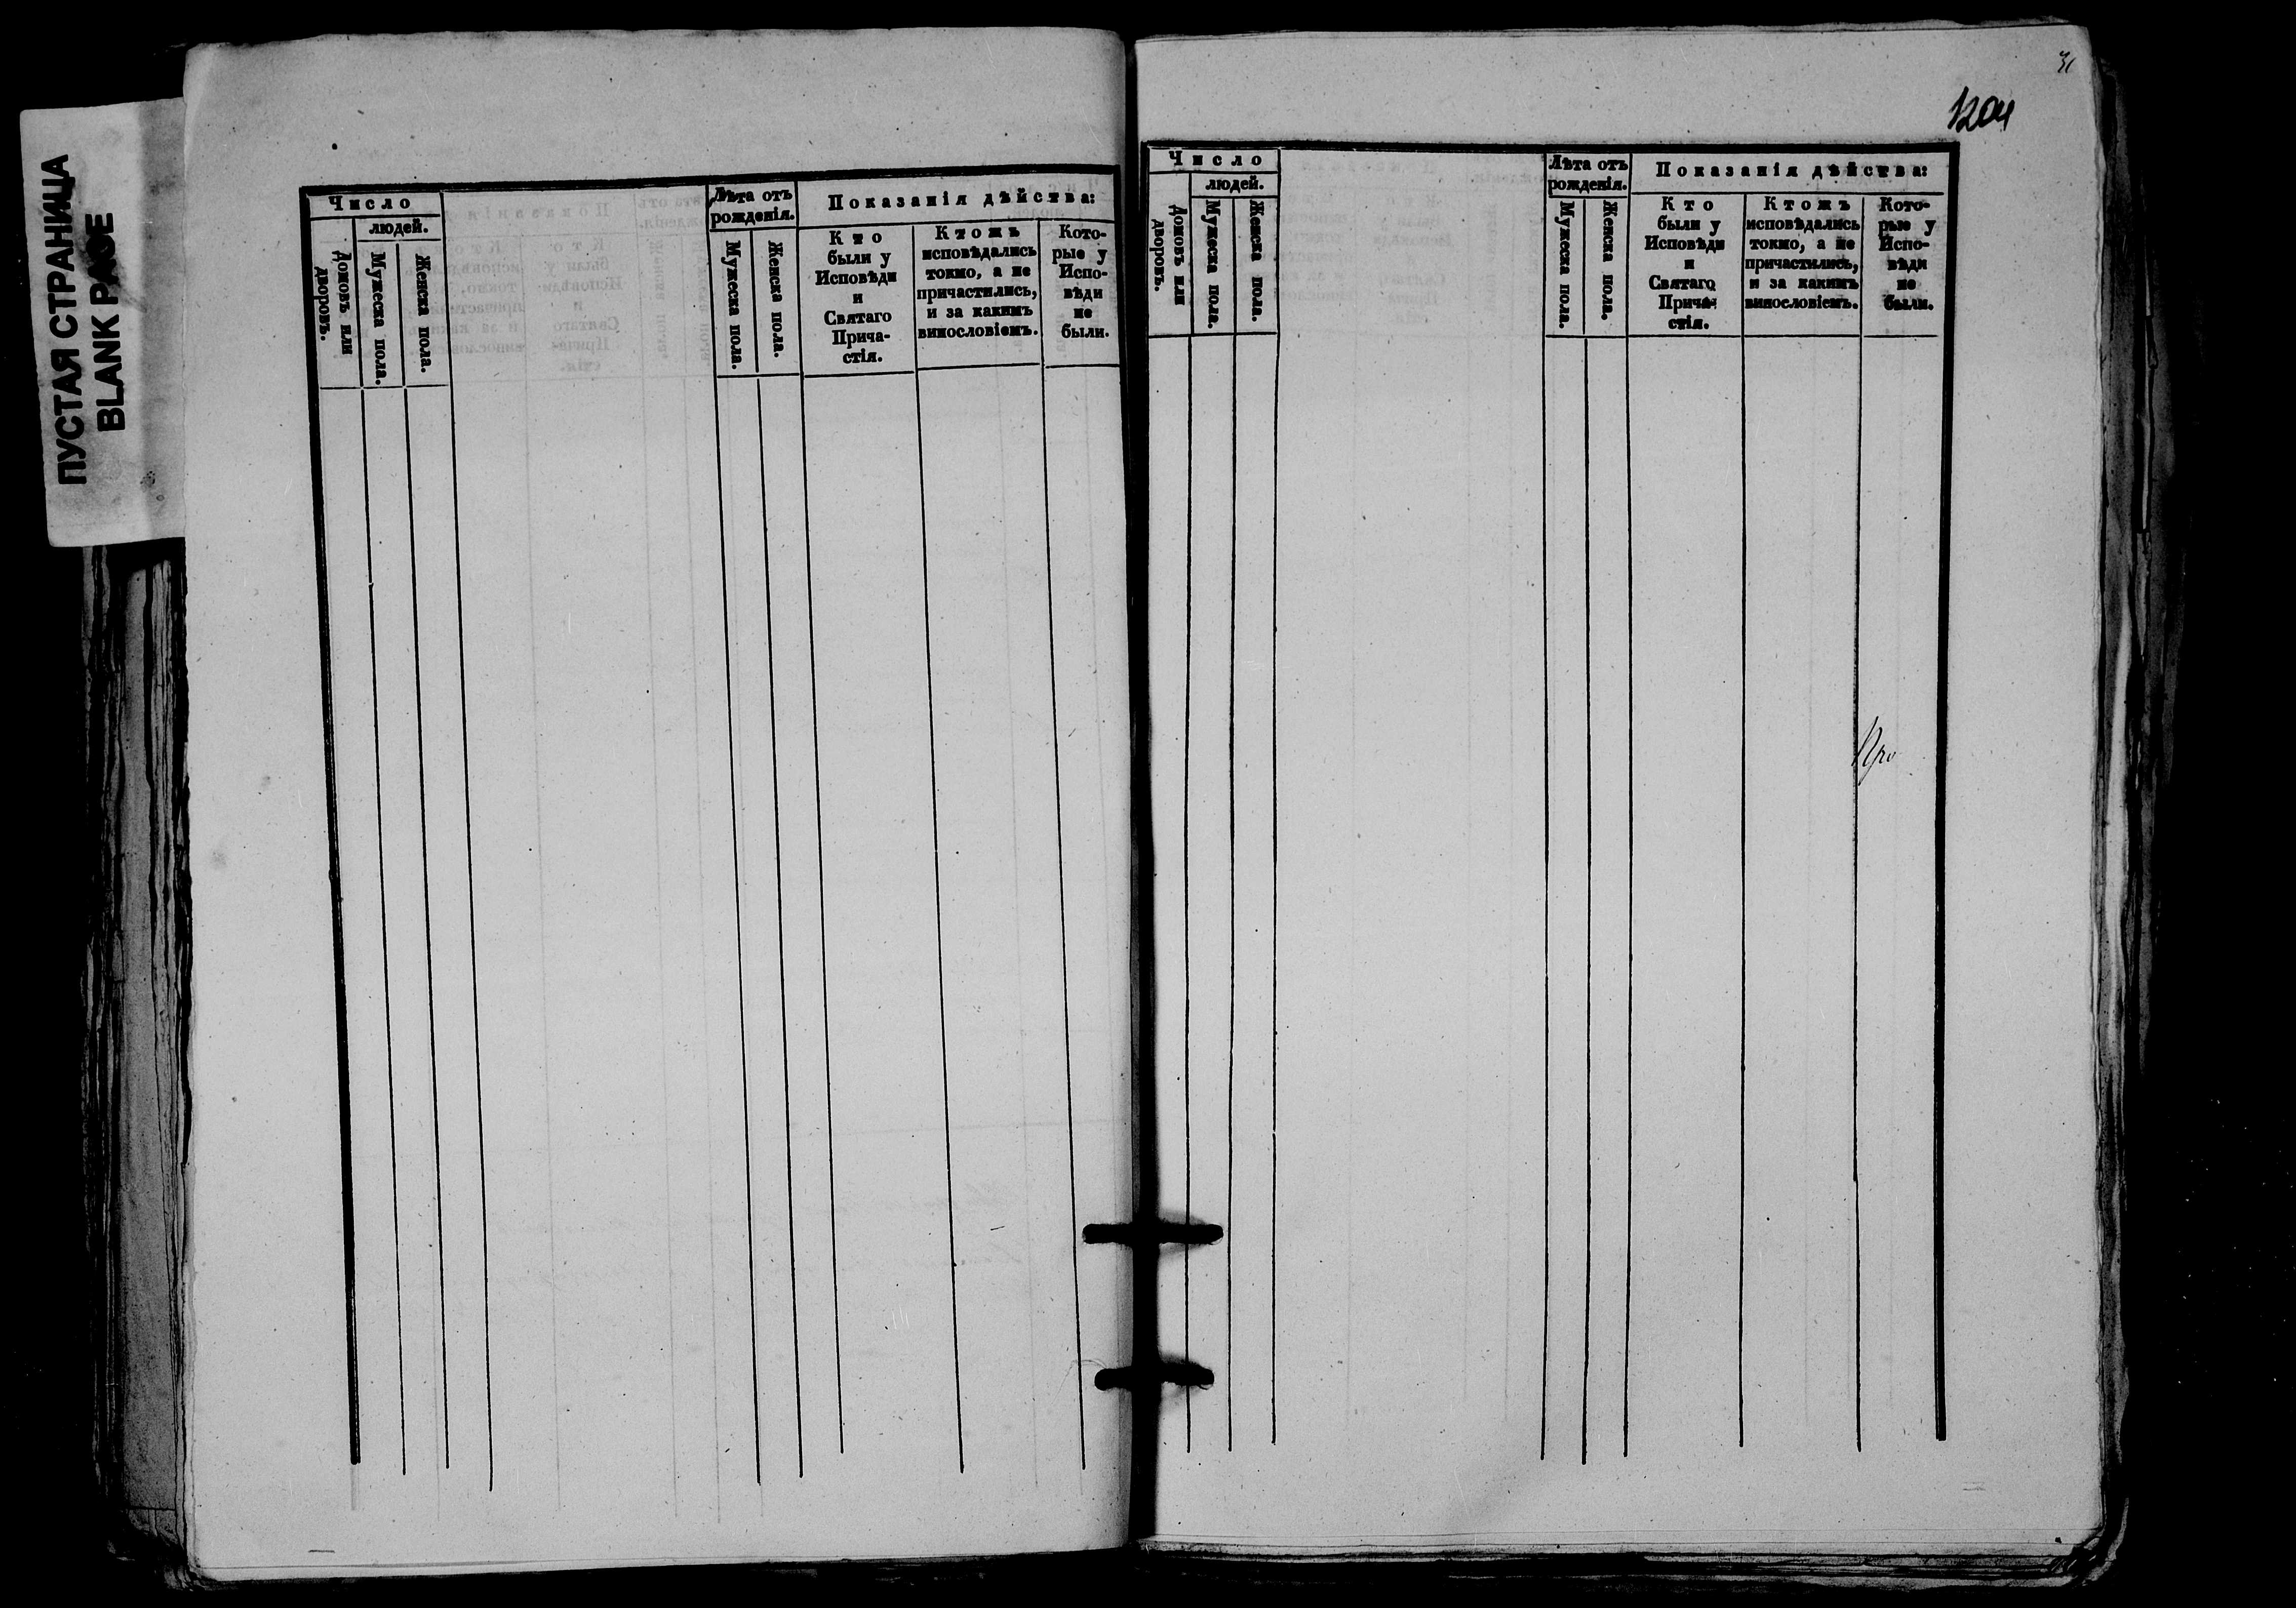 ПУСТАЯ СТРАНИЦА
BLANK PAGE
Число
людей.
Домовъ или
дворовъ.
Мужеска пола.
Женска пола.
Лѣта отъ
рожденія.
Мужеска пола.
Женска пола.
Показанія дѣйства:
Кто
были у
Исповѣди
и
Святаго
Прича-
стія.
Ктожъ
исповѣдались
токмо, а не
причастились,
и за какимъ
винословіемъ.
Кото-
рые у
Испо-
вѣди
не
были.
31
1204
Число
людей.
Домовъ или
дворовъ.
Мужеска пола.
Женска пола.
Лѣта отъ
рожденія.
Мужеска пола.
Женска пола.
Показанія дѣйства:
Кто
были у
Исповѣди
и
Святаго
Прича-
стія.
Ктожъ
исповѣдались
токмо, а не
причастились,
и за какимъ
винословіемъ.
Кото-
рые у
Испо-
вѣди
не
были.
Про